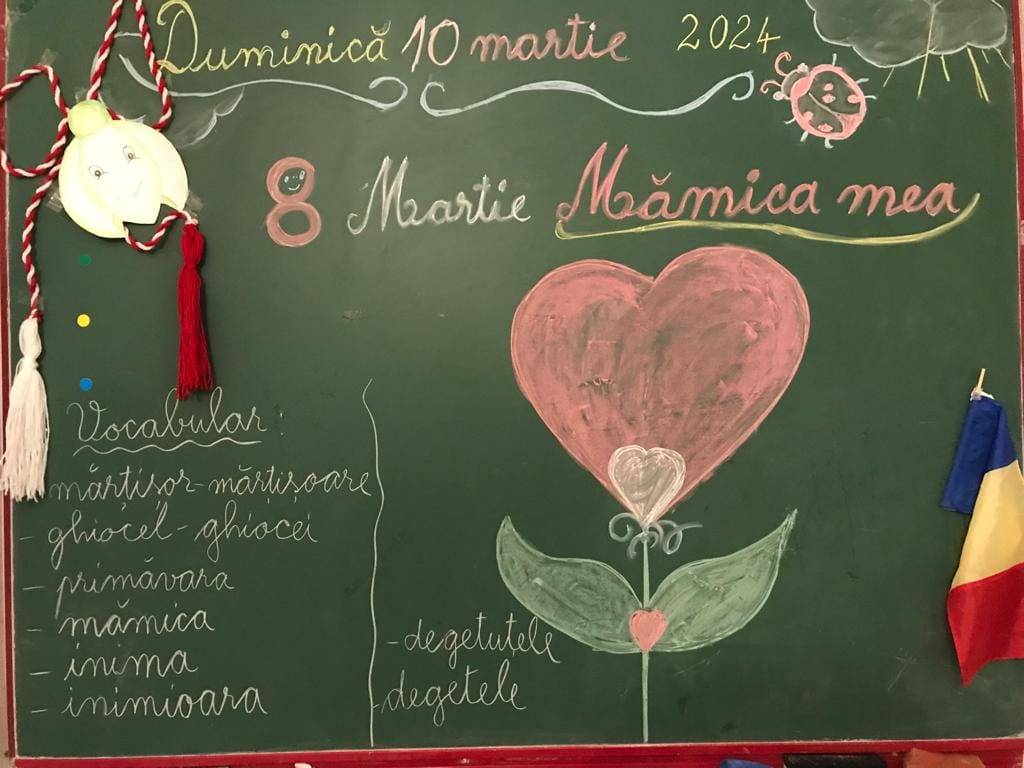 Duminică 10 martie 2024
8 Martie Mămica mea
Vocabular:
mărțișor-mărțișoare
- ghiocel - ghiocei
- primăvara
- mămica
- inima
- inimioara
- degetuțele
- degetele